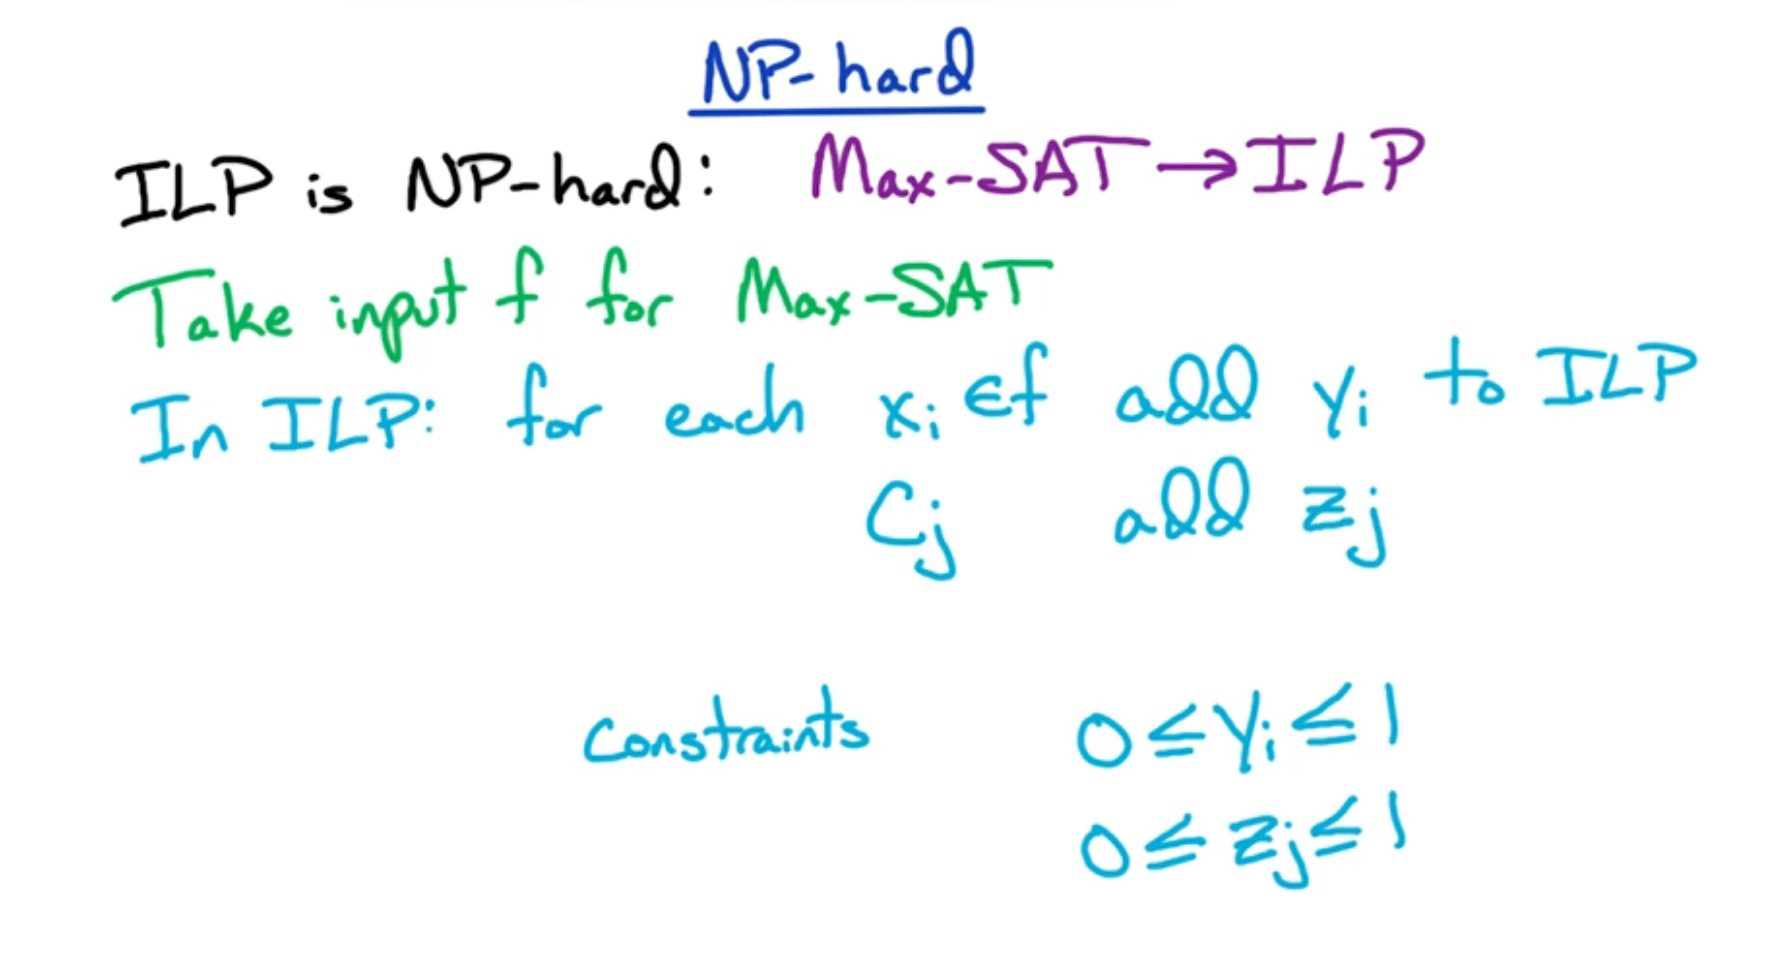 NP-hard
ILP is NP-hard: Max-SAT → ILP
Take input f for Max-SAT
In ILP: for each xᵢ ∈ f add yᵢ to ILP
Cⱼ add zⱼ
constraints 0 ≤ yᵢ ≤ 1
0 ≤ zⱼ ≤ 1